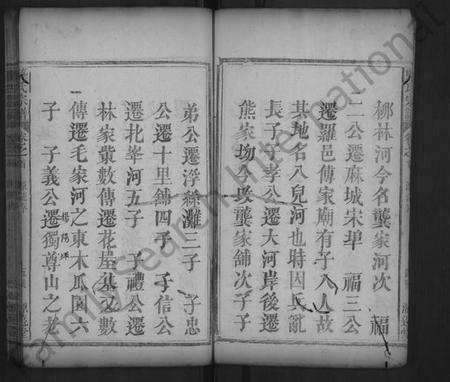 柳林河今名龔家河次　福
二公遷麻城宋埠　福三公
遷羅邑傅家廟有子八人故
其地名八兒河也時因氏亂
長子子孝公遷大河岸後遷
熊家坳今改龔家舖次子子
弟公遷浮線灘三子　子忠
公遷十里舖四子　子信公
遷北峯河五子　子禮公遷
林家黨數傳遷花崖基又數
傳遷毛家河之東木瓜園六
子　子義公遷獨尊山之老
FamilySearch International